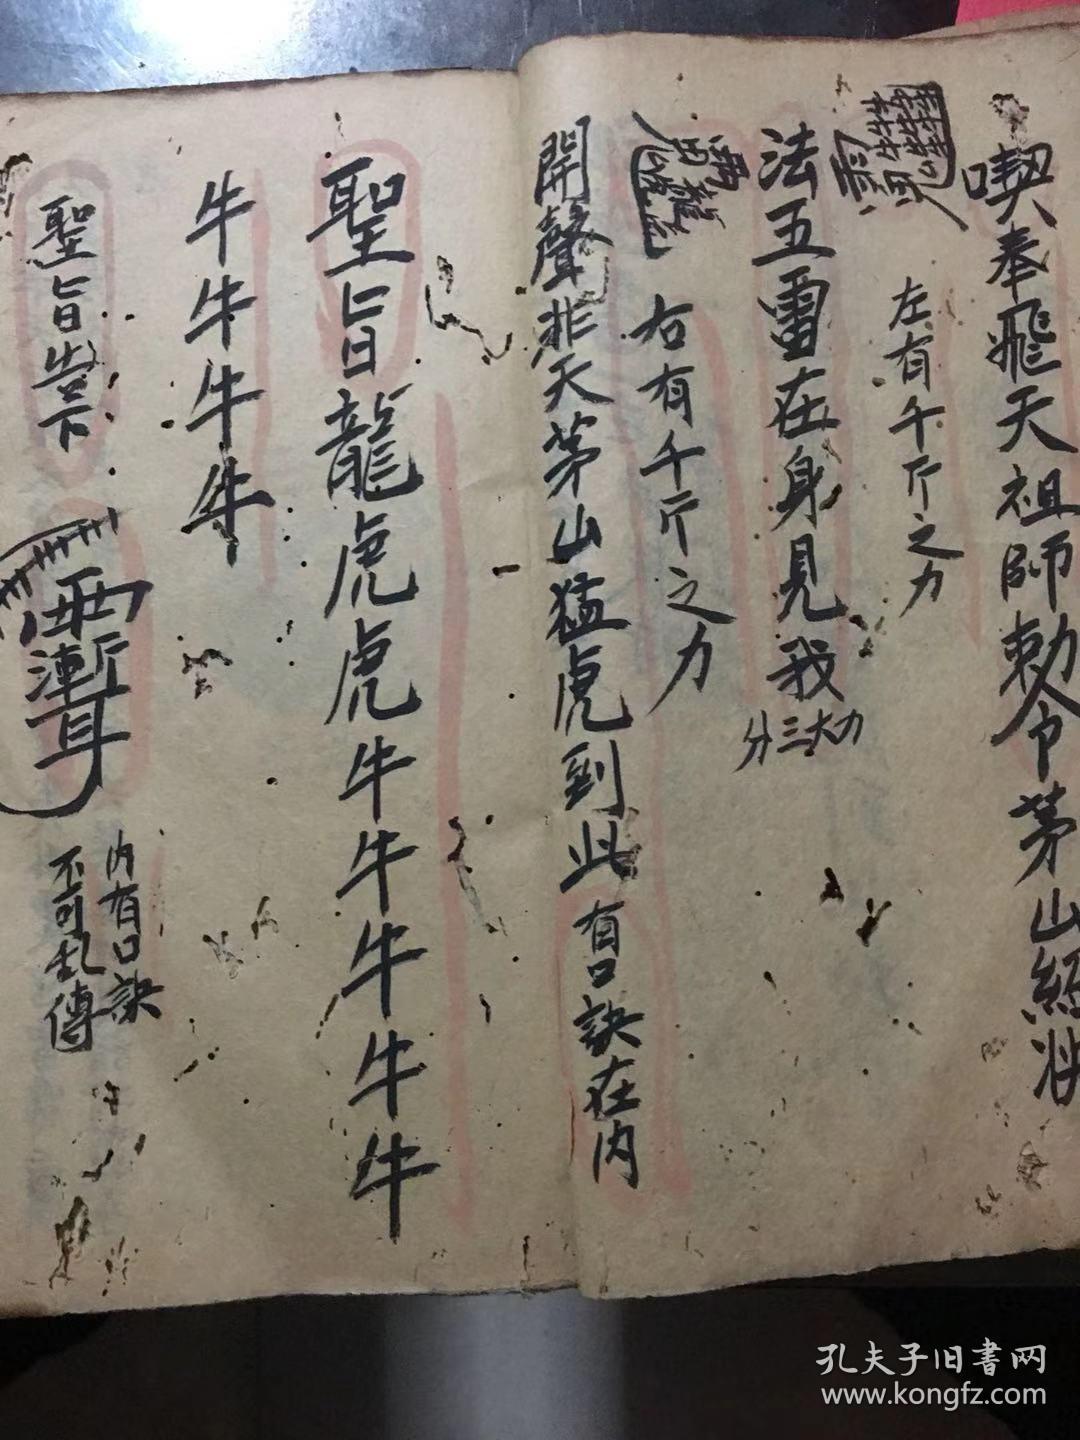 喫奉飛天祖師勅令茅山經將
左有千斤之力
法五雷在身見我
分三大力
右有千斤之力
開聲非天茅山猛虎到此有口訣在內
聖旨龍虎虎牛牛牛牛牛
牛牛牛牛
聖旨當下
內有口訣
不可乱傳
孔夫子旧书网
www.kongfz.com